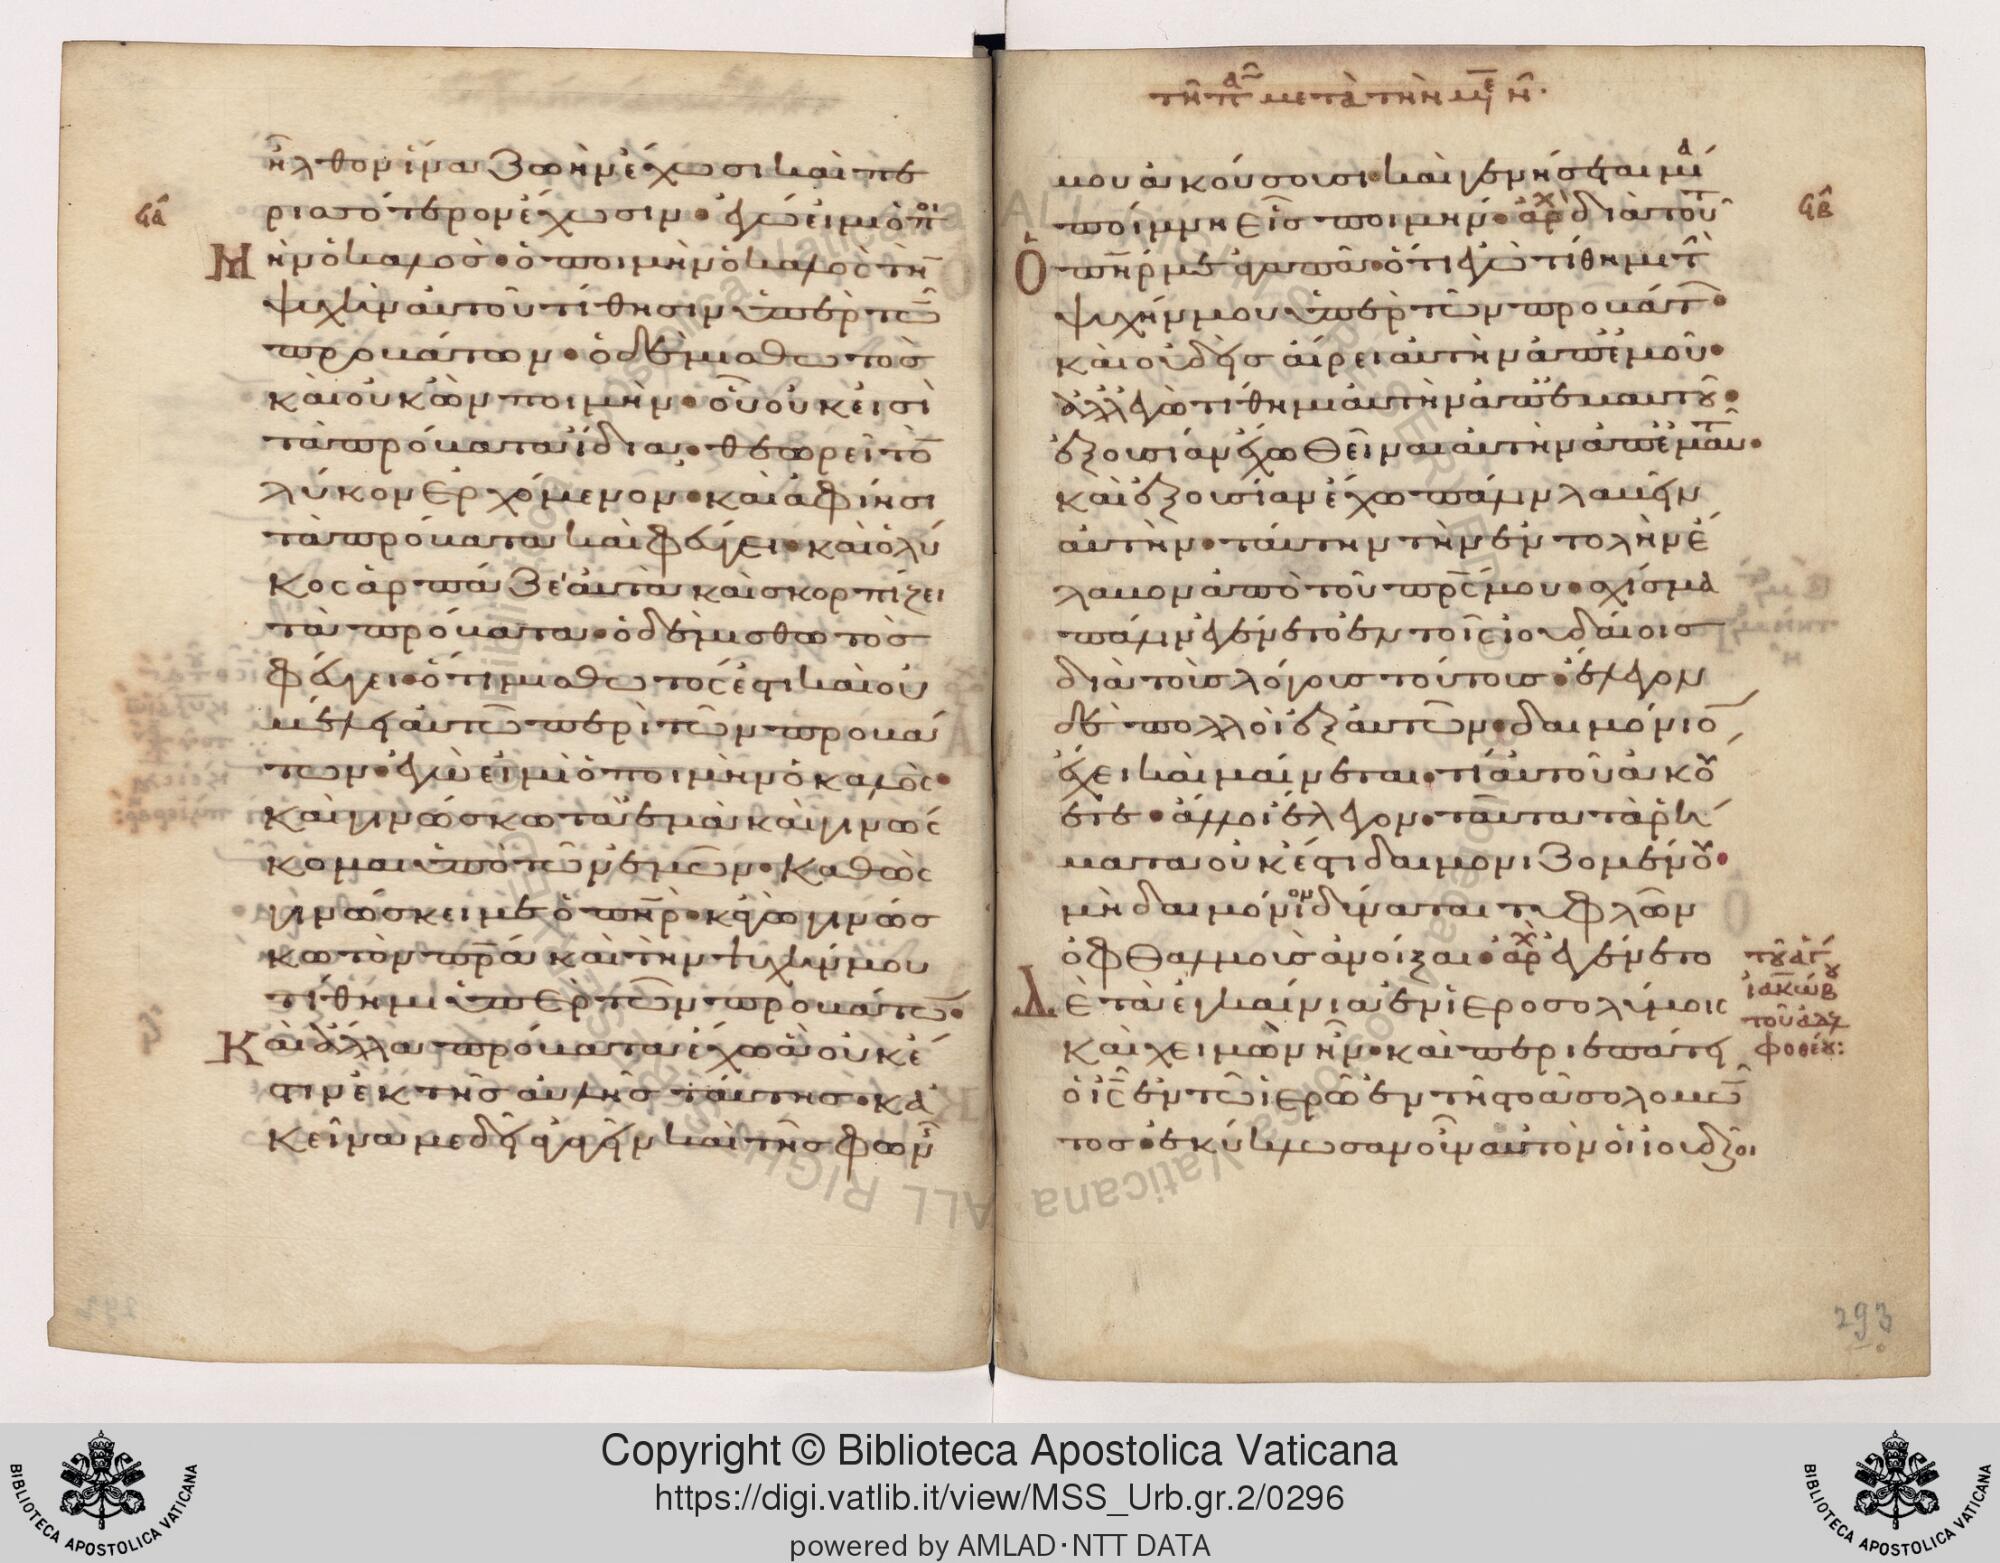 ϟα
ἦλθον ἵνα ζωὴν ἔχωσι καὶ πε
ρισσότερον ἔχωσιν· ἐγώ εἰμι ὁ ποι
μὴν ὁ καλός· ὁ ποιμὴν ὁ καλὸς τὴν
ψυχὴν αὐτοῦ τίθησιν ὑπὲρ τῶν
προβάτων· ὁ δὲ μισθωτὸς
καὶ οὐκ ὢν ποιμὴν· οὗ οὐκ εἰσὶ
τὰ πρόβατα ἴδια· θεωρεῖ τὸν
λύκον ἐρχόμενον· καὶ ἀφίησι
τὰ πρόβατα καὶ φεύγει· καὶ ὁ λύ
κος ἁρπάζει αὐτὰ καὶ σκορπίζει
τὰ πρόβατα· ὁ δὲ μισθωτὸς
φεύγει· ὅτι μισθωτός ἐστι καὶ οὐ
μέλει αὐτῶ περὶ τῶν προβά
των· ἐγώ εἰμι ὁ ποιμὴν ὁ καλός·
καὶ γινώσκω τὰ ἐμὰ καὶ γινώσ
κομαι ὑπὸ τῶν ἐμῶν· καθὼς
γινώσκει με ὁ πηρ· κἀγὼ γινώσ
κω τὸν πρα καὶ τὴν ψυχήν μου
τίθημι ὑπὲρ τῶν προβάτων·
Καὶ ἄλλα πρόβατα ἔχω ἃ οὐκ ἔ
στιν ἐκ τῆς αὐλῆς ταύτης· κἀ
κεῖνά με δεῖ ἀγαγεῖν καὶ τῆς φων
τῆ πα μετὰ τὴν με ν·
ϟβ
μου ἀκούσουσι· καὶ γενήσεται μία
ποίμνη εἷς ποιμήν· αρχ διὰ τοῦτ
Ὁ πηρ με ἀγαπᾶ· ὅτι ἐγὼ τίθημι τὴν
ψυχήν μου ὑπὲρ τῶν προβάτων·
καὶ οὐδεὶς αἴρει αὐτὴν ἀπ' ἐμοῦ·
ἀλλ' ἐγὼ τίθημι αὐτὴν ἀπ' ἐμαυτοῦ·
ἐξουσίαν ἔχω θεῖναι αὐτὴν ἀπ' ἐμαυτοῦ·
καὶ ἐξουσίαν ἔχω πάλιν λαβεῖν
αὐτὴν· ταύτην τὴν ἐντολὴν ἔ
λαβον ἀπὸ τοῦ πρς μου· σχίσμα
πάλιν ἐγένετο ἐν τοῖς ἰουδαίοις
διὰ τοὺς λόγους τούτους· ἔλεγον
δὲ πολλοὶ ἐξ αὐτῶν· δαιμόνιον
ἔχει καὶ μαίνεται· τί αὐτοῦ ἀκού
ετε· ἄλλοι ἔλεγον· ταῦτα τὰ ῥή
ματα οὐκ ἔστι δαιμονιζομένου·
μὴ δαιμόνιον δύναται τυφλῶν
ὀφθαλμοὺς ἀνοῖξαι· αρχ ἐγένετο
Δὲ τὰ ἐγκαίνια ἐν ἱεροσολύμοις
καὶ χειμὼν ἦν· καὶ περιεπάτει
ὁ ις ἐν τῶ ἱερῶ ἐν τῆ στοᾶ σολομῶν
τος· ἐκύκλωσαν οὖν αὐτὸν οἱ ἰουδαῖοι
τοῦ ἁγ
ἰακώβου
τοῦ ἀδελ
φοθέου:
293
Copyright © Biblioteca Apostolica Vaticana
https://digi.vatlib.it/view/MSS_Urb.gr.2/0296
powered by AMLAD·NTT DATA
BIBLIOTECA APOSTOLICA VATICANA
BIBLIOTECA APOSTOLICA VATICANA